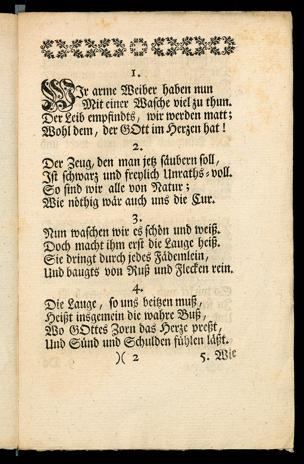 1.
Wir arme Weiber haben nun
Mit einer Wasche viel zu thun.
Der Leib empfindts, wir werden matt;
Wohl dem, der GOtt im Herzen hat!
2.
Der Zeug, den man jetz säubern soll,
Ist schwarz und freylich Unraths-voll.
So sind wir alle von Natur;
Wie nöthig wär auch uns die Cur.
3.
Nun waschen wir es schön und weiß.
Doch macht ihm erst die Lauge heiß.
Sie dringt durch jedes Fädemlein,
Und baugts von Ruß und Flecken rein.
4.
Die Lauge, so uns beitzen muß,
Heißt insgemein die wahre Buß,
Wo GOttes Zorn das Herze preßt,
Und Sünd und Schulden fühlen läßt.
)( 2 5. Wie